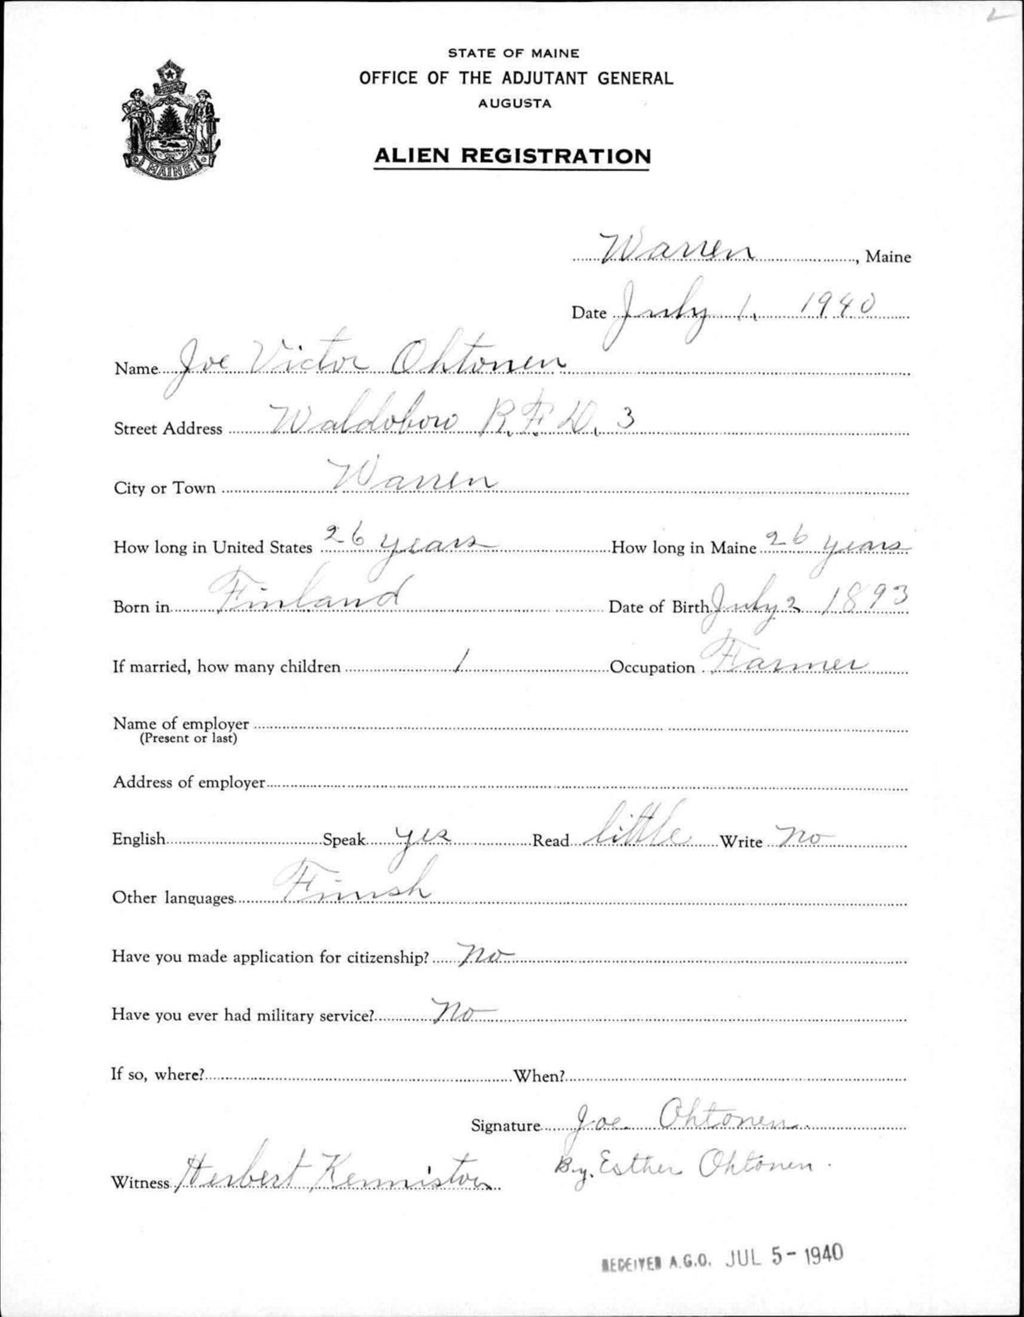 2
STATE OF MAINE
OFFICE OF THE ADJUTANT GENERAL
AUGUSTA
ALIEN REGISTRATION
MAINE
Warren, Maine
Date July 1, 1940
Name Joe Victor Ohtonen
Street Address Waldoboro R.F.D. 3
City or Town Warren
How long in United States 26 years How long in Maine 26 years
Born in Finland Date of Birth July 2 1893
If married, how many children 1 Occupation Farmer
Name of employer
(Present or last)
Address of employer
English Speak yes Read little Write no
Other languages Finnsh
Have you made application for citizenship? No
Have you ever had military service? No
If so, where? When?
Signature Joe Ohtonen
Witness Herbert Kenniston By, Esther Ohtonen.
RECEIVED A.G.O. JUL 5-1940